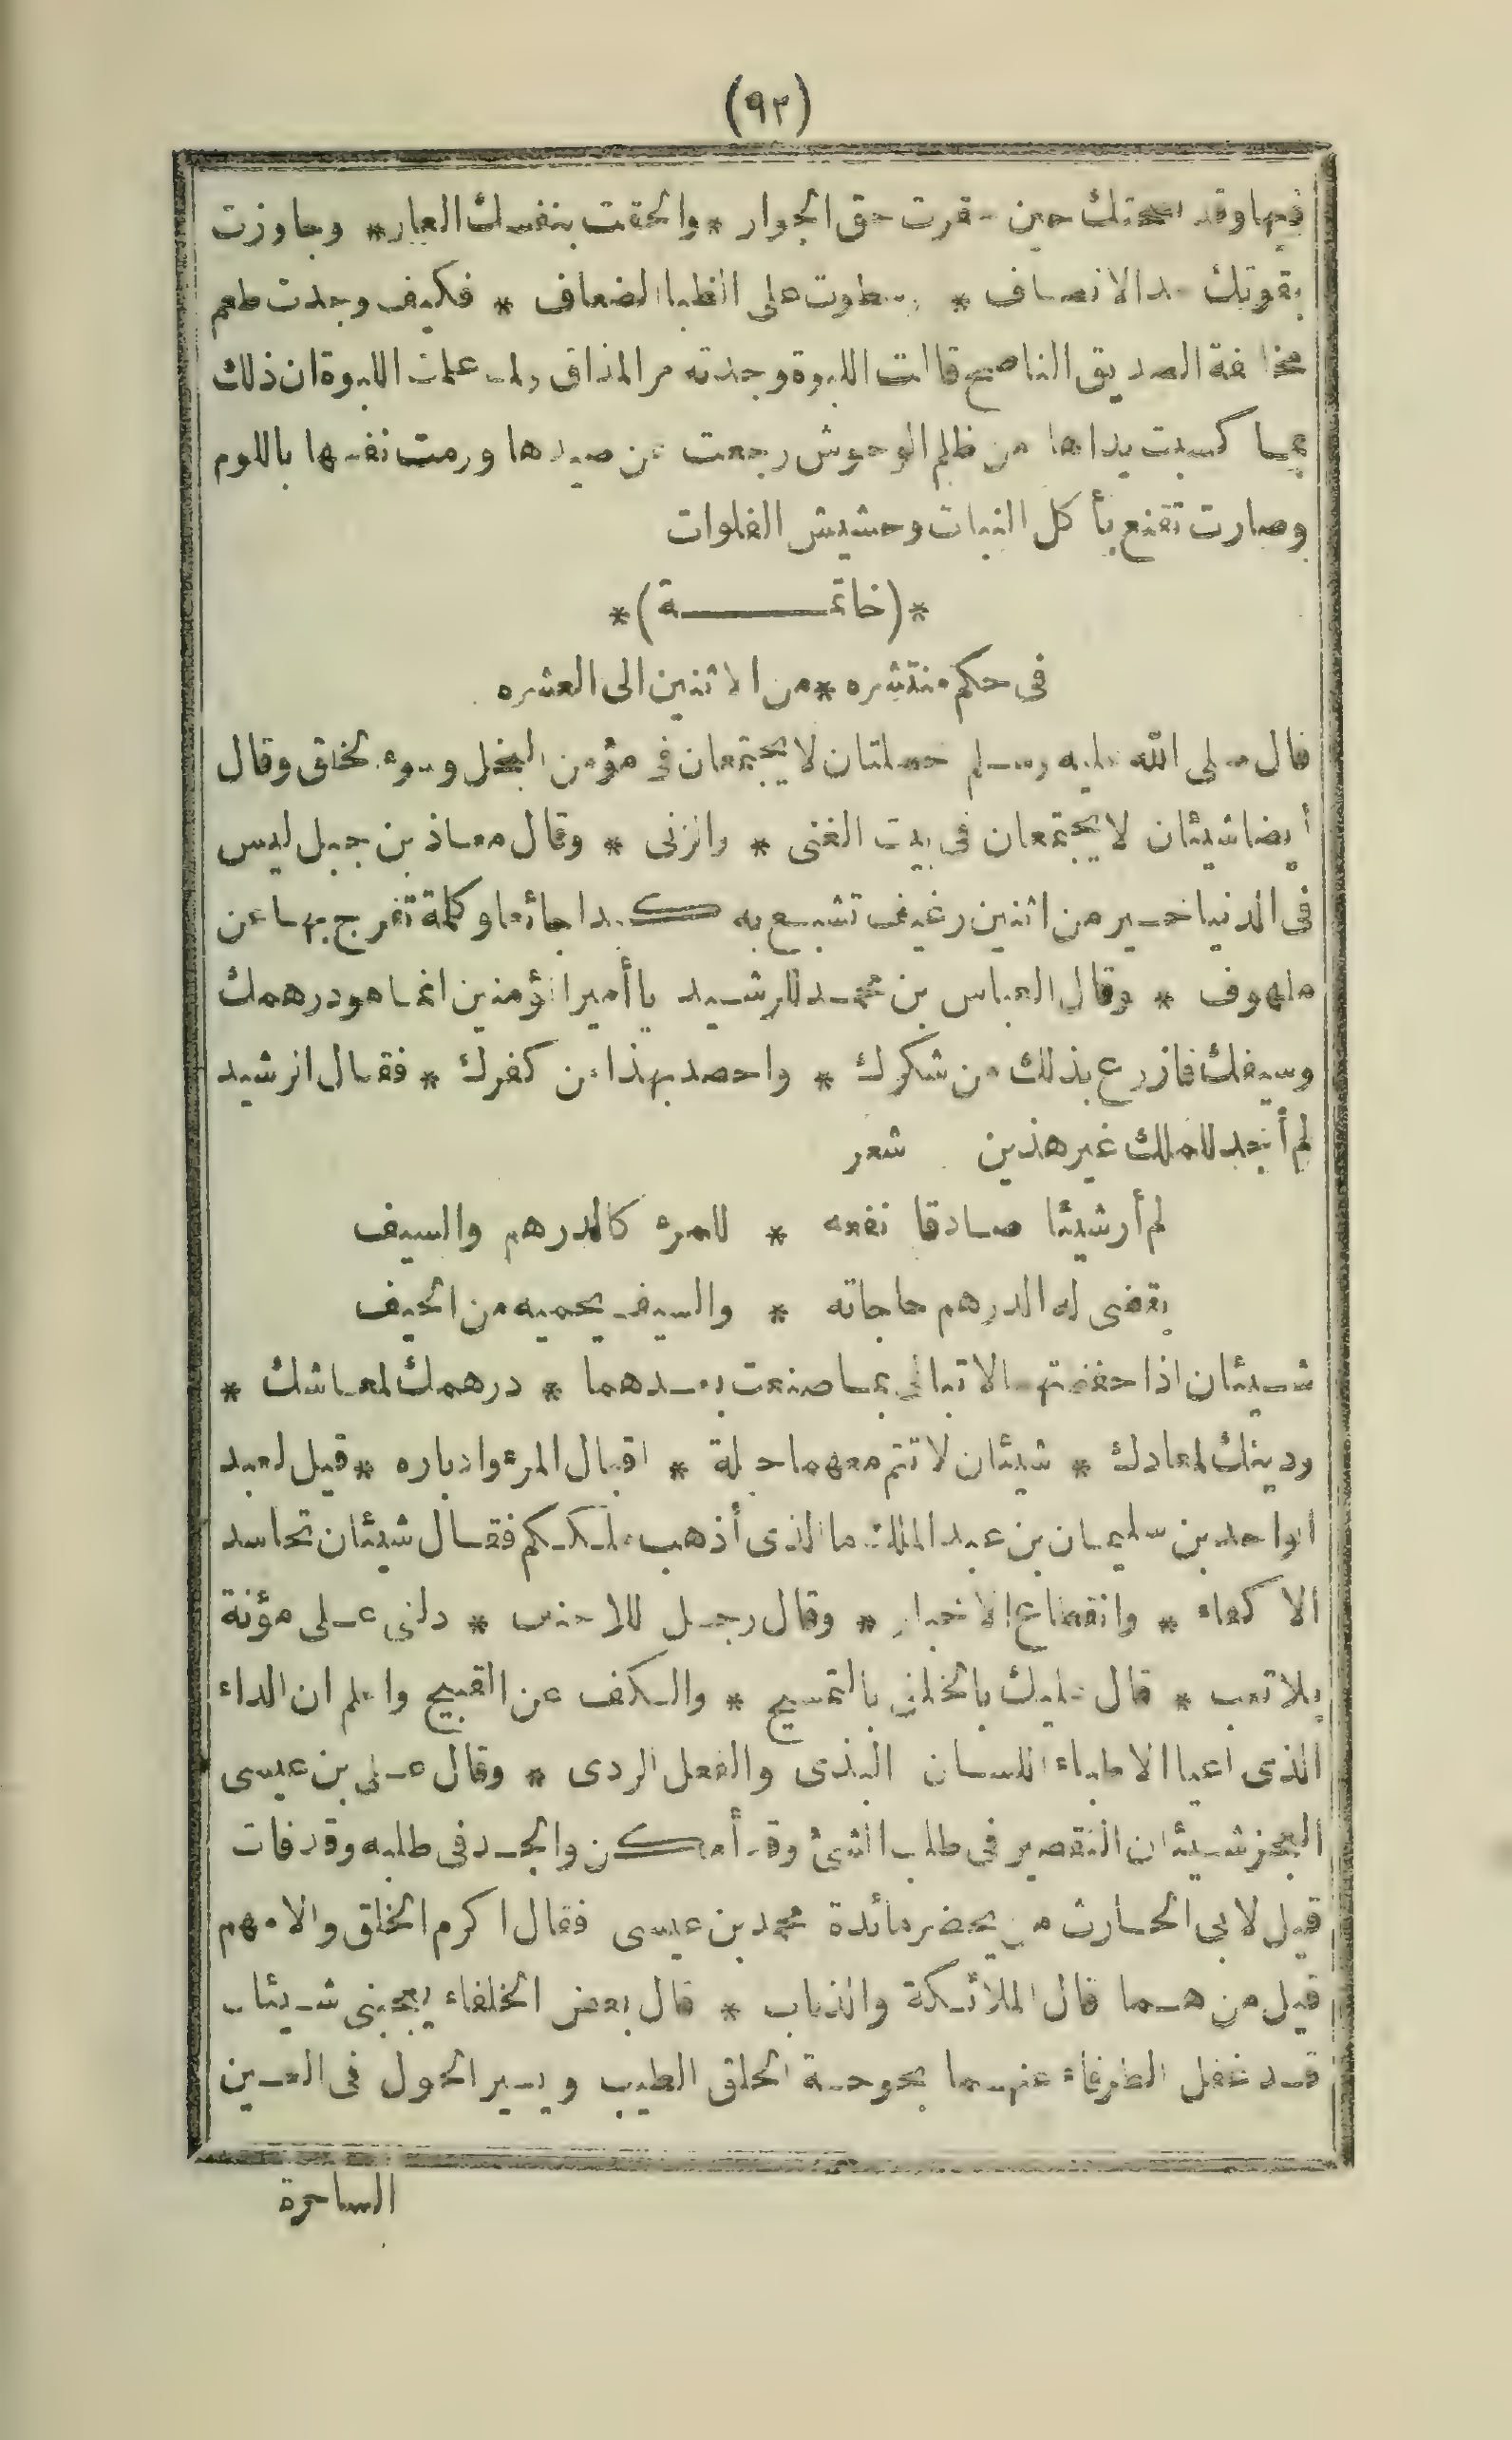 (٩٢)
فيها وقد نصحتك حين حقرت حق الجوار * والحقت بنفسك العار * وجاوزت
بقوتك حد الانصاف * وسطوت على الظباء الضعاف * فكيف وجدت طعم
مخالفة الصديق الناصح قالت اللبوة وجدته مر المذاق ولما علمت اللبوة ان ذلك
بما كسبت يداها من ظلم الوحوش رجعت عن صيدها ورمت نفسها باللوم
وصارت تقنع بأكل النبات وحشيش الفلوات
*(خاتمـــة)*
فى حكم منتثره * من الاثنين الى العشره
قال صلى الله عليه وسلم خصلتان لا يجتمعان فى مؤمن البخل وسوء الخلق وقال
أيضا شيئان لا يجتمعان فى بيت الغنى * والزنى * وقال معاذ بن جبل ليس
فى الدنيا خير من اثنين رغيف تشبع به كبدا جائعا وكلمة تفرج بها عن
ملهوف * وقال العباس بن محمد للرشيد يا أمير المؤمنين انما هو درهمك
وسيفك فازرع بذلك من شكرك * واحصد بهذا من كفرك * فقال الرشيد
لم أجد للملك غير هذين شعر
لم أر شيئا صادقا نفعه * للمرء كالدرهم والسيف
يقضى له الدرهم حاجاته * والسيف يحميه من الحيف
شيئان اذا حفظتهما لا تبالى بما صنعت بعدهما * درهمك لمعاشك *
ودينك لمعادك * شيئان لا تتم معهما حيلة * اقبال المرء وادباره * قيل لعبد
الواحد بن سليمان بن عبد الملك ما الذى أذهب ملككم فقال شيئان تحاسد
الاكفاء * وانقطاع الاخبار * وقال رجل للاحنف * دلنى على مؤنة
بلا تعب * قال عليك بالخلق بالتمسيح * والكف عن القبيح واعلم ان الداء
الذى اعيا الاطباء اللسان البذى والفعل الردى * وقال على بن عيسى
العجز شيئان التقصير فى طلب الشئ وقد أمكن والجد فى طلبه وقد فات
قيل لابى الحارث من يحضر مائدة محمد بن عيسى فقال اكرم الخلق والأمهم
قيل من هما قال الملائكة والذباب * قال بعض الخلفاء يعجبنى شيئان
قد غفل الظرفاء عنهما بحوحة الحلق الطيب ويسير الحول فى العين
الساحرة